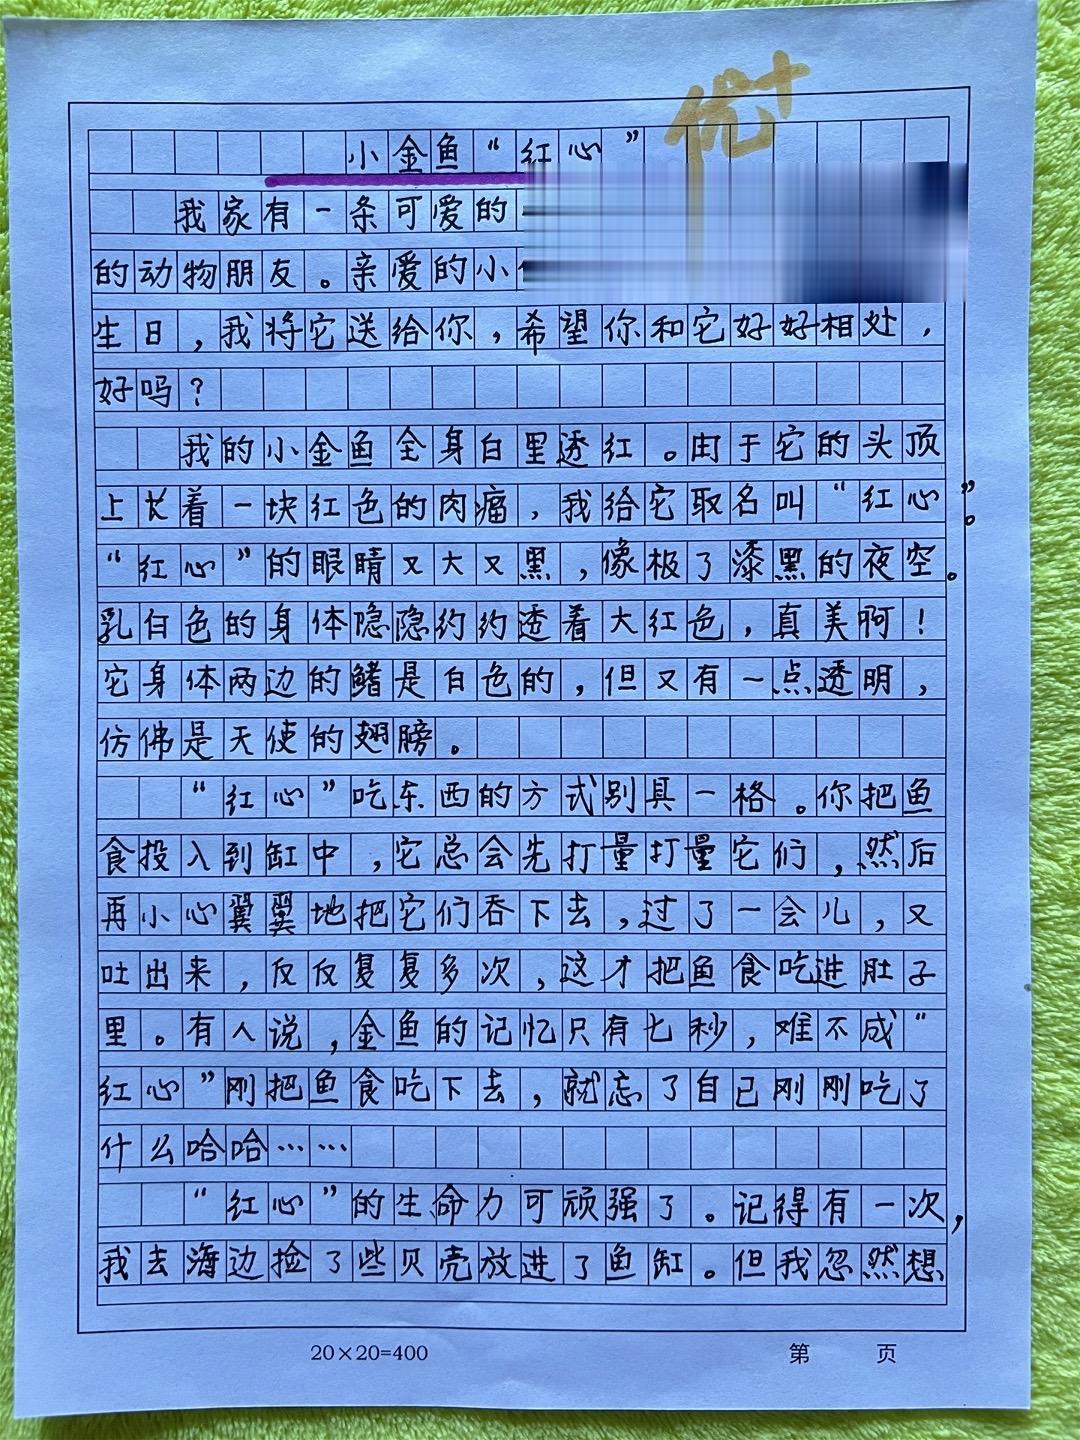 优+
小金鱼“红心”
我家有一条可爱的
的动物朋友。亲爱的小
生日，我将它送给你，希望你和它好好相处，
好吗？
我的小金鱼全身白里透红。由于它的头顶
上长着一块红色的肉瘤，我给它取名叫“红心”。
“红心”的眼睛又大又黑，像极了漆黑的夜空。
乳白色的身体隐隐约约透着大红色，真美啊！
它身体两边的鳍是白色的，但又有一点透明，
仿佛是天使的翅膀。
“红心”吃东西的方式别具一格。你把鱼
食投入到缸中，它总会先打量打量它们，然后
再小心翼翼地把它们吞下去，过了一会儿，又
吐出来，反反复复多次，这才把鱼食吃进肚子
里。有人说，金鱼的记忆只有七秒，难不成“
红心”刚把鱼食吃下去，就忘了自己刚刚吃了
什么哈哈……
“红心”的生命力可顽强了。记得有一次，
我去海边捡了些贝壳放进了鱼缸。但我忽然想
20×20=400
第 页